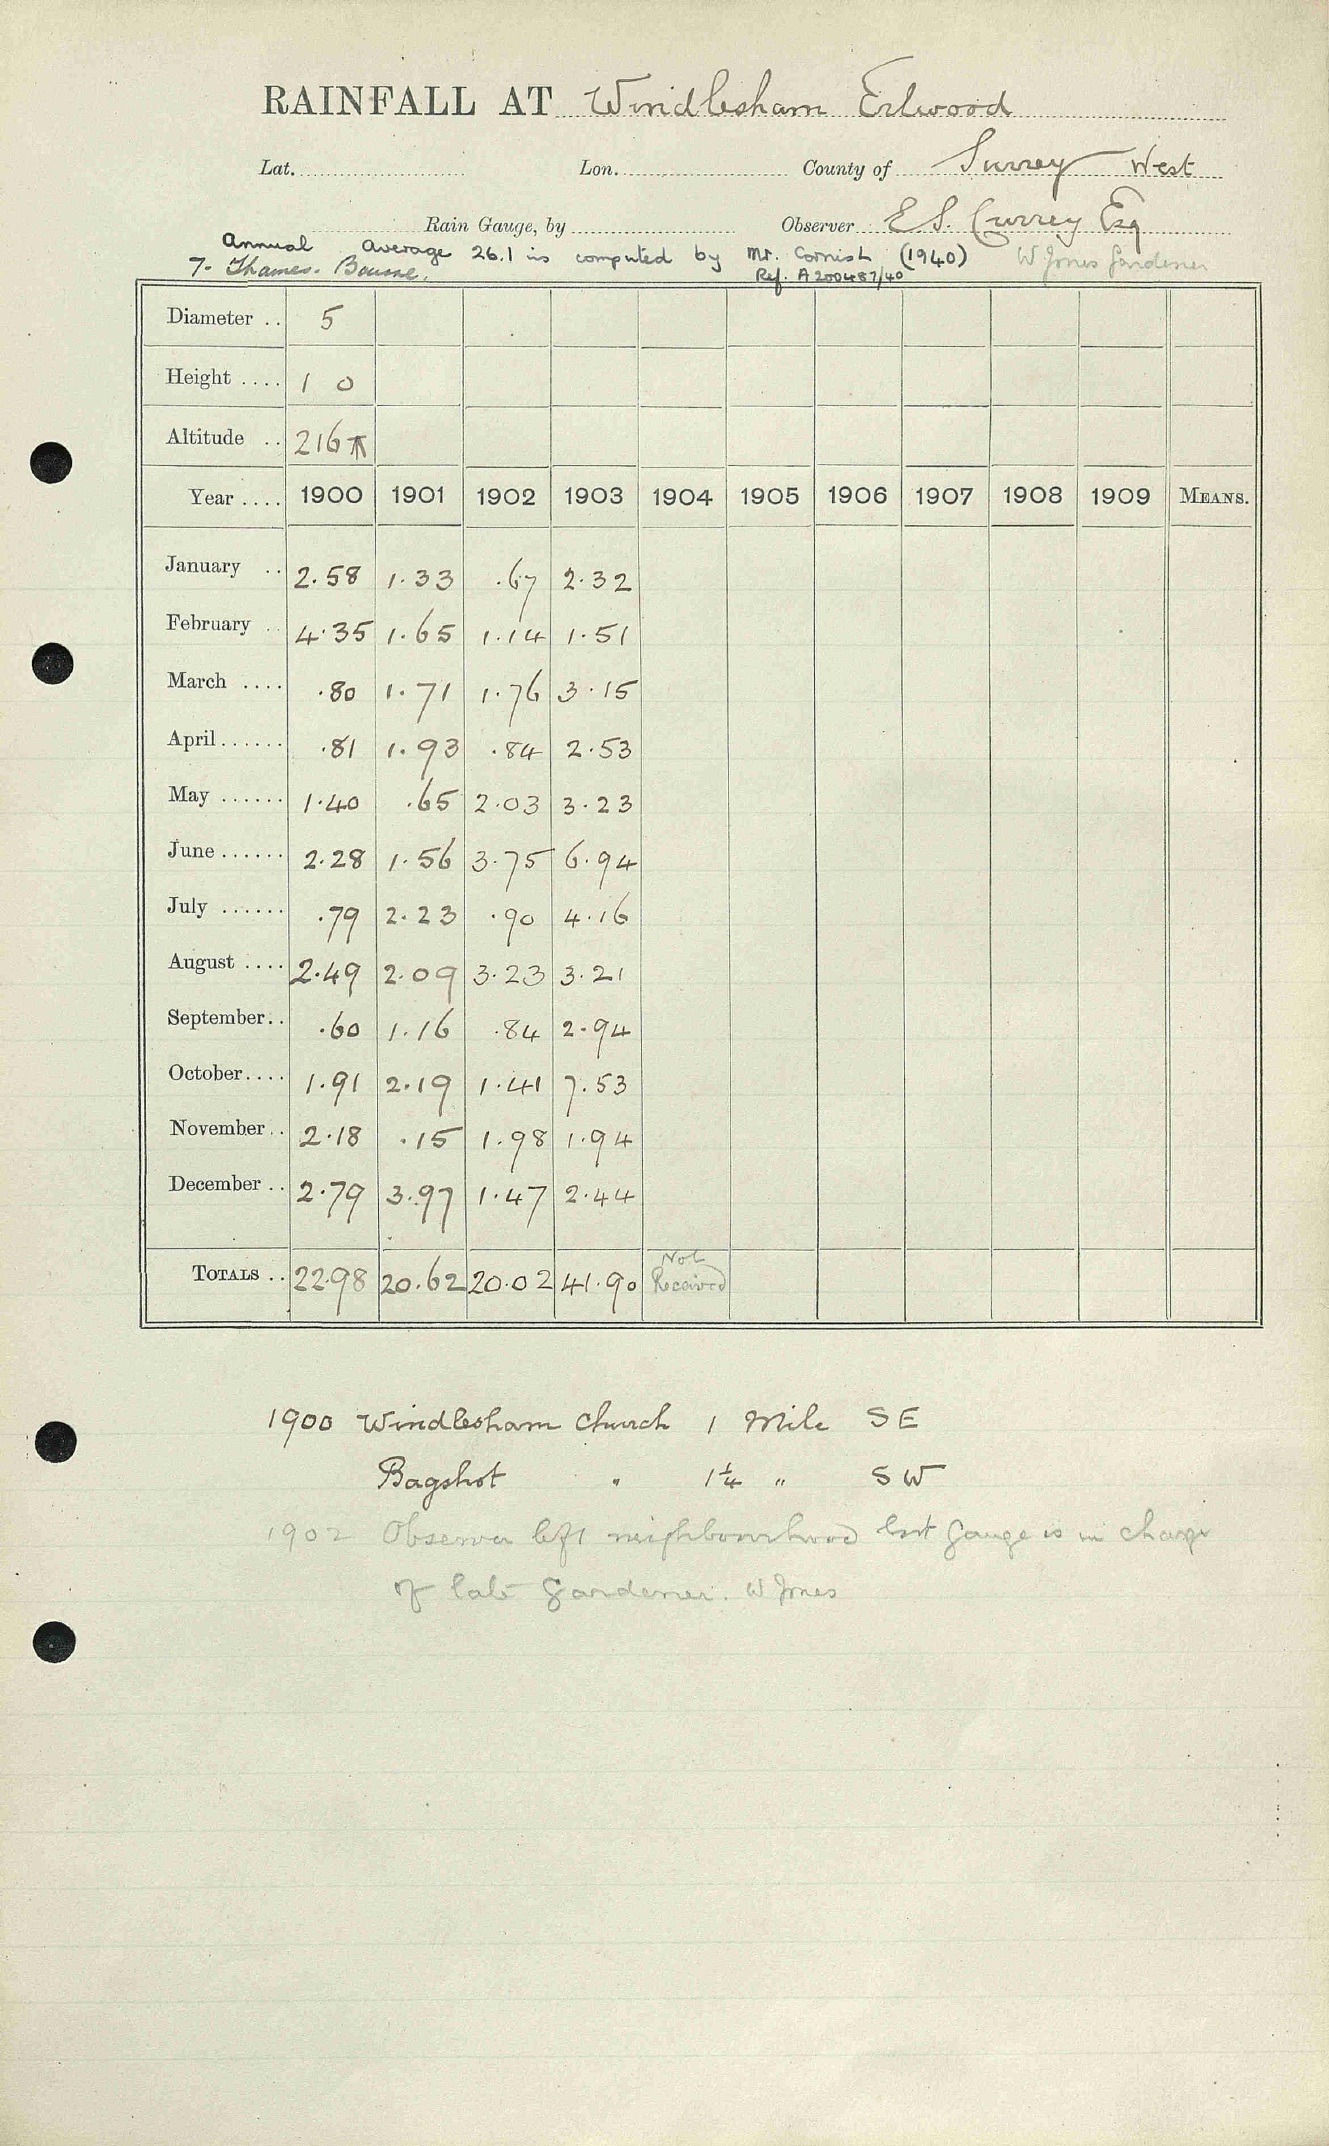 RAINFALL AT Windlesham Erlwood
Lat. Lon. County of Surrey West
Rain Gauge, by Observer E S. Currey Esq
Annual Average 26.1 in computed by Mr. Cornish (1940) W Jones Gardener
7. Thames. Bourne. Ref. A200487/40
Diameter .. 5
Height .... 1 0
Altitude .. 216
Year .... 1900 1901 1902 1903 1904 1905 1906 1907 1908 1909 MEANS.
January .. 2.58 1.33 .67 2.32
February .. 4.35 1.65 1.14 1.51
March .... .80 1.71 1.76 3.15
April ...... .81 1.93 .84 2.53
May ...... 1.40 .65 2.03 3.23
June ...... 2.28 1.56 3.75 6.94
July ...... .79 2.23 .90 4.16
August .... 2.49 2.09 3.23 3.21
September.. .60 1.16 .84 2.94
October.... 1.91 2.19 1.41 7.53
November.. 2.18 .15 1.98 1.94
December .. 2.79 3.97 1.47 2.44
TOTALS .. 22.98 20.62 20.02 41.90 Not Received
1900 Windlesham Church 1 Mile SE
Bagshot " 1¼ " SW
1902 Observer left neighbourhood but gauge is in charge
of late gardener. W Jones